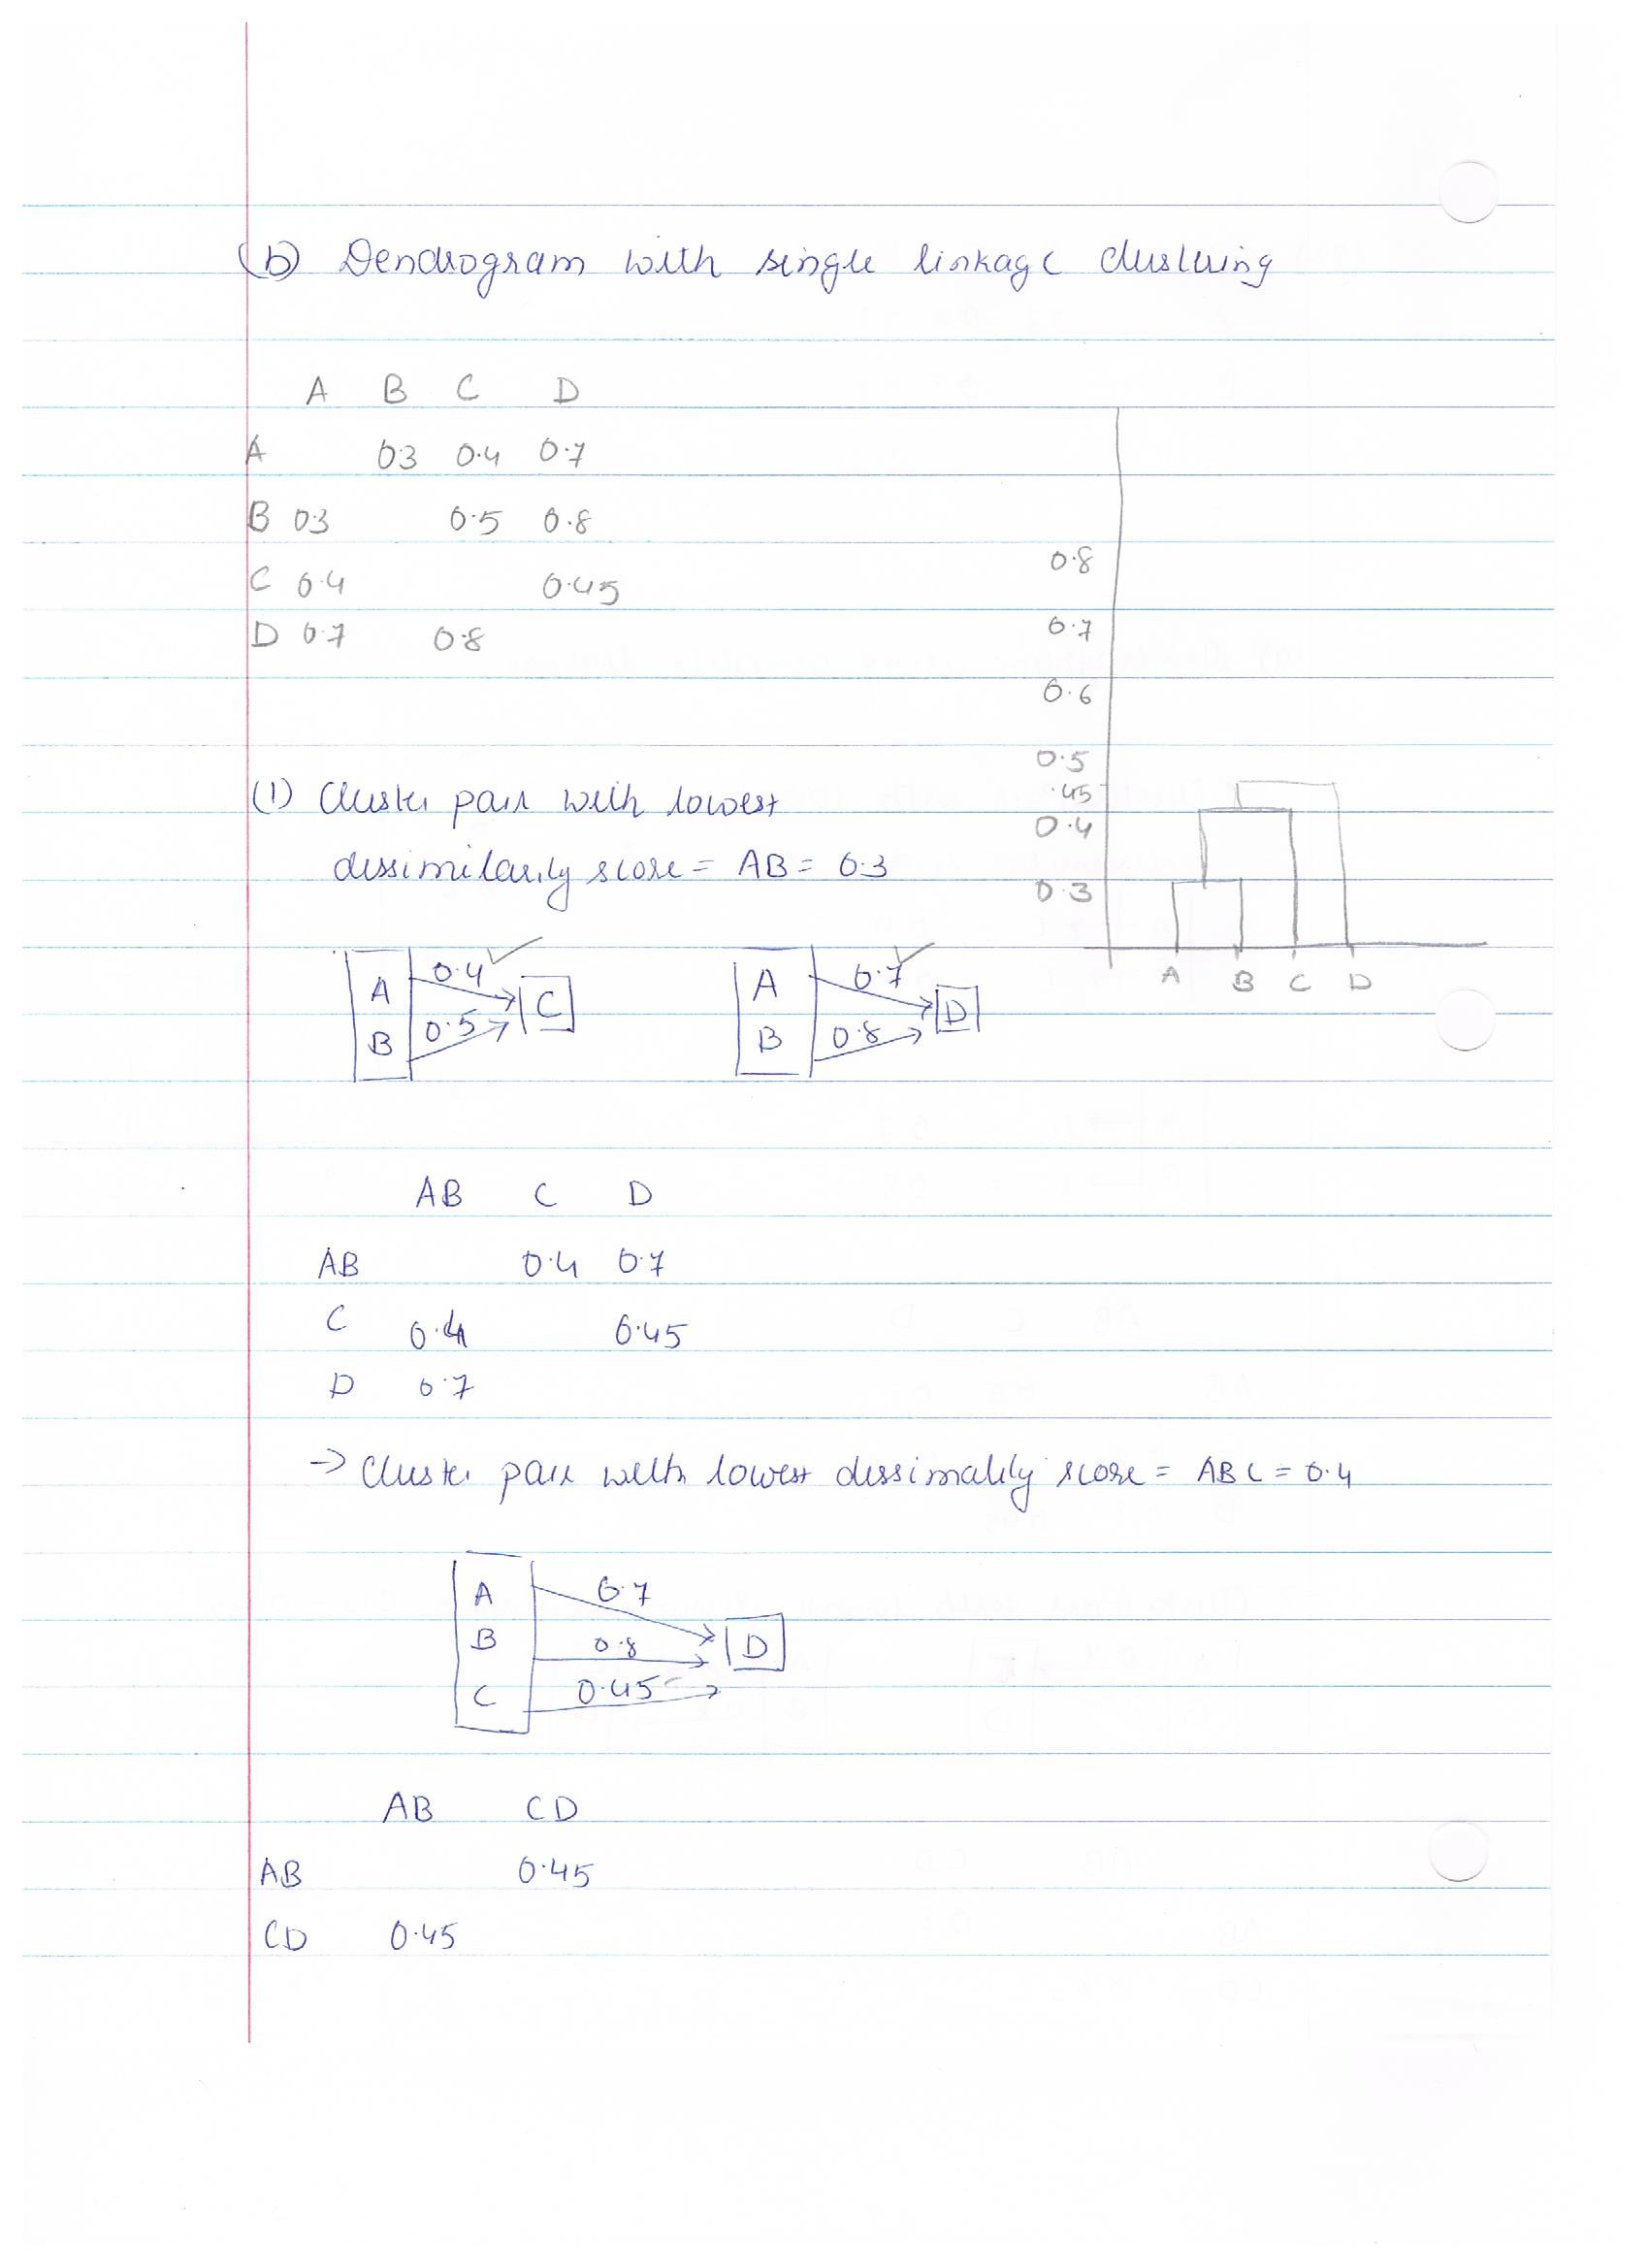 (b) Dendrogram with single linkage clustering
A B C D
A 03 0.4 0.7
B 03 0.5 0.8
C 0.4 0.45
D 0.7 0.8
0.8
0.7
0.6
0.5
.45
0.4
0.3
A B C D
(1) Cluster pair with lowest
dissimilarity score = AB = 0.3
A 0.4 C
B 0.5
A 0.7 D
B 0.8
AB C D
AB 0.4 0.7
C 0.4 0.45
D 0.7
→ Cluster pair with lowest dissimality score = ABC = 0.4
A 0.7
B 0.8 D
C 0.45
AB CD
AB 0.45
CD 0.45